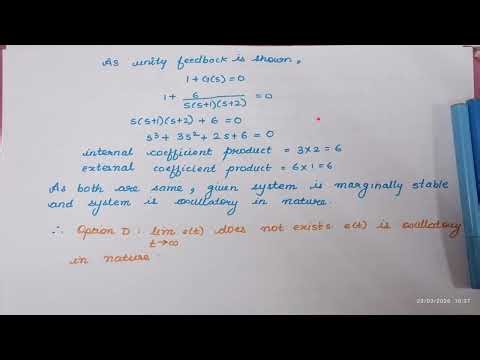 As unity feedback is shown,
1 + G(s) = 0
1 + 6 / s(s+1)(s+2) = 0
s(s+1)(s+2) + 6 = 0
s³ + 3s² + 2s + 6 = 0
internal coefficient product = 3×2 = 6
external coefficient product = 6×1 = 6
As both are same, given system is marginally stable
and system is oscillatory in nature.
∴ Option D : lim t→∞ e(t) does not exists e(t) is oscillatory
in nature.
03/03/2026 10:37